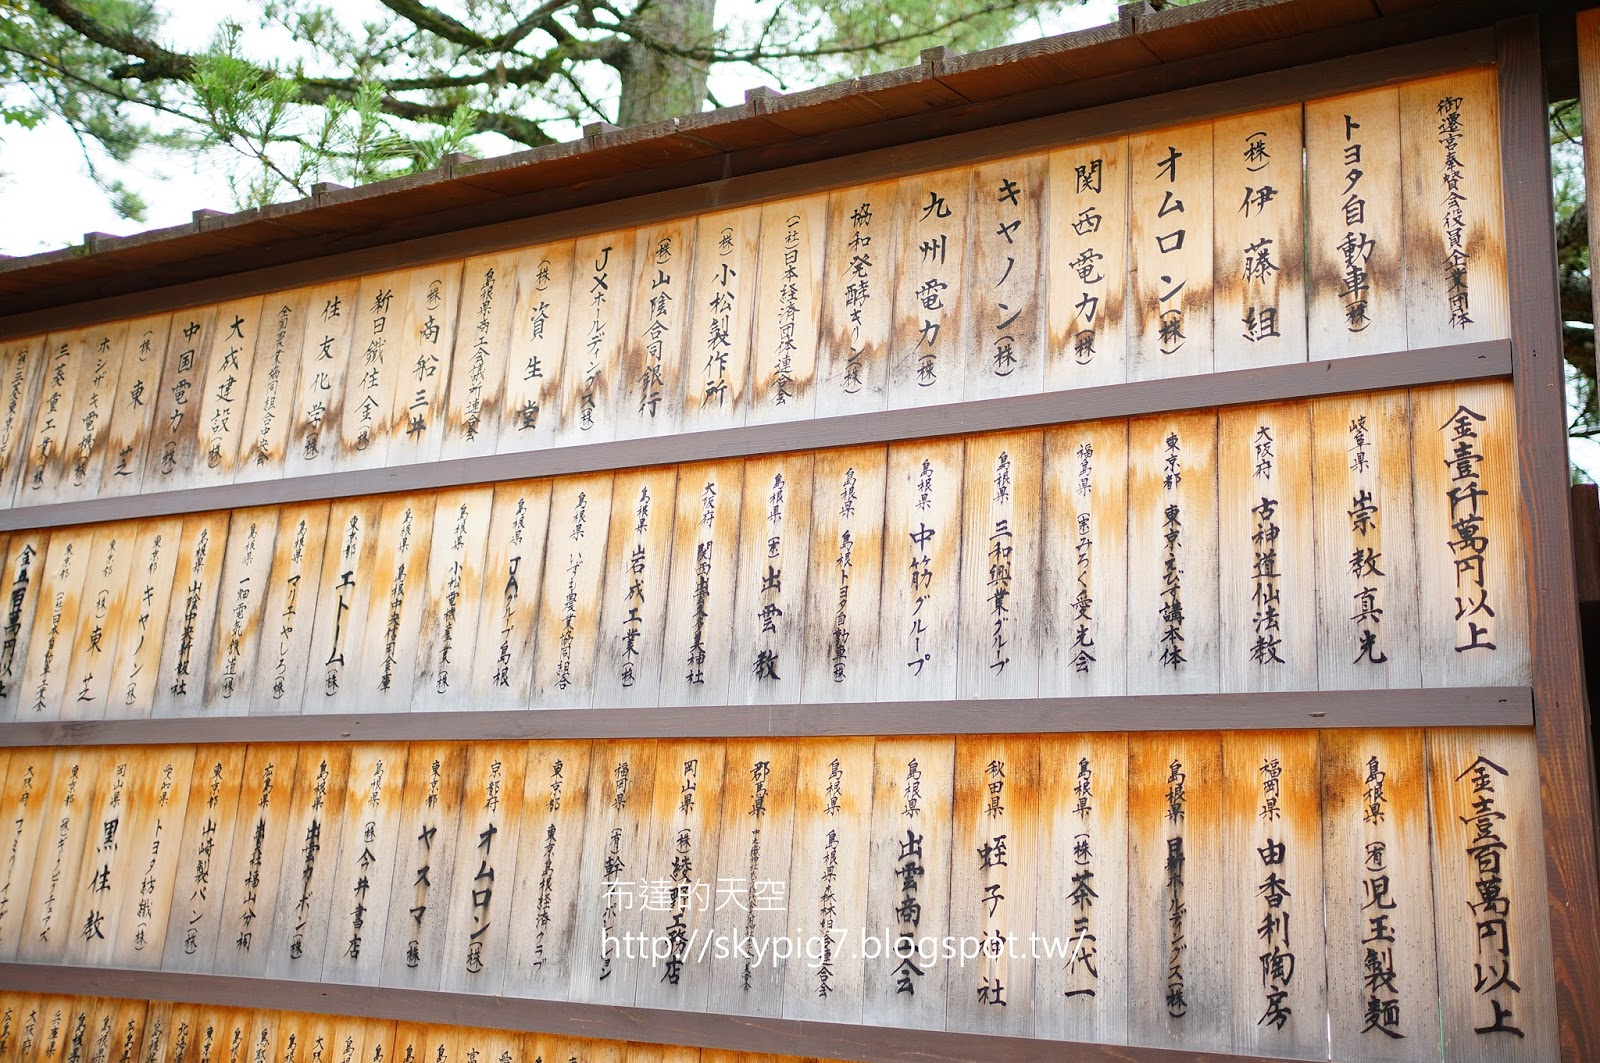 御遷宮奉賛会役員企業団体
トヨタ自動車(株)
(株)伊藤組
オムロン(株)
関西電力(株)
キヤノン(株)
九州電力(株)
協和発酵キリン(株)
(一社)日本経済団体連合会
(株)小松製作所
(株)山陰合同銀行
JXホールディングス(株)
(株)資生堂
島根県商工会議所連合会
(株)商船三井
新日鐵住金(株)
住友化学(株)
全国農業協同組合中央会
大成建設(株)
中国電力(株)
(株)東芝
ホシザキ電機(株)
三菱重工業(株)
金壹阡萬円以上
岐阜県 崇教真光
大阪府 古神道仙法教
東京都 東京えびす講本体
福島県 (宗)みろく愛光会
島根県 三和興業グループ
島根県 中筋グループ
島根県 島根トヨタ自動車(株)
島根県 (宗)出雲教
大阪府
島根県 岩成工業(株)
島根県 いずも農業協同組合
島根県 JAグループ島根
島根県 小松電機産業(株)
島根県 島根中央信用金庫
東京都 エトーム(株)
島根県 マリエやしろ(株)
島根県 一畑電気鉄道(株)
島根県 山陰中央新報社
東京都 キヤノン(株)
東京都 (株)東芝
東京都
金五百萬円以上
金壹百萬円以上
島根県 (有)児玉製麺
福岡県 由香利陶房
島根県 日新ホールディングス(株)
島根県 (株)茶三代一
秋田県 蛭子神社
島根県 出雲商工会
島根県 島根県森林組合連合会
岡山県 (株)綾野工務店
福岡県
東京都 東京島根経済クラブ
京都府 オムロン(株)
東京都 ヤスマ(株)
島根県 (株)今井書店
島根県 出雲カーボン(株)
広島県 出雲大社福山分祠
東京都 山崎製パン(株)
愛知県 トヨタ紡織(株)
岡山県 黒住教
東京都
大阪府
布達的天空
http://skypig7.blogspot.tw/